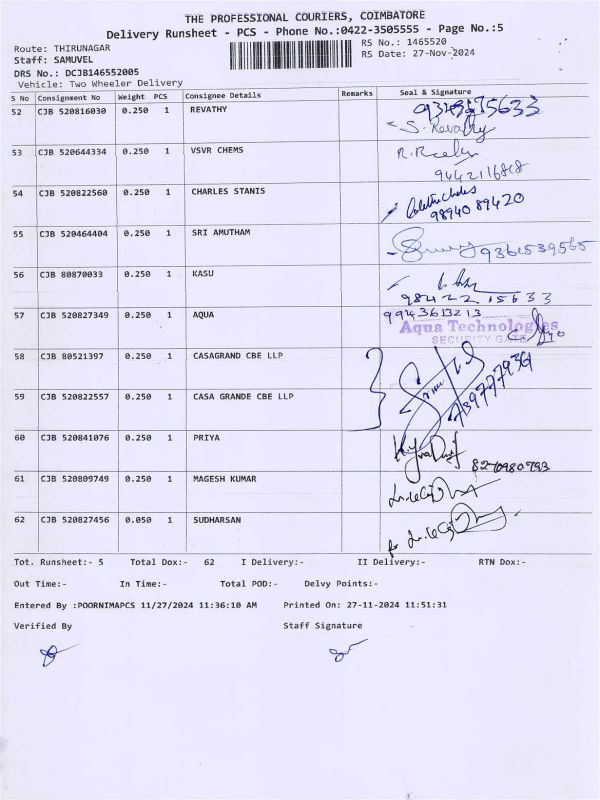 THE PROFESSIONAL COURIERS, COIMBATORE
Delivery Runsheet - PCS - Phone No.:0422-3505555 - Page No.:5
Route: THIRUNAGAR
RS No.: 1465520
Staff: SAMUVEL
RS Date: 27-Nov-2024
DRS No.: DCJB146552005
Vehicle: Two Wheeler Delivery
S No Consignment No Weight PCS Consignee Details Remarks Seal & Signature
52 CJB 520816030 0.250 1 REVATHY
S. Revathy
53 CJB 520644334 0.250 1 VSVR CHEMS
9442116818
54 CJB 520822560 0.250 1 CHARLES STANIS
98940 89420
55 CJB 520464404 0.250 1 SRI AMUTHAM
56 CJB 80870033 0.250 1 KASU
98422 15633
57 CJB 520827349 0.250 1 AQUA 9943613213
Aqua Technologies
SECURITY GATE
58 CJB 80521397 0.250 1 CASAGRAND CBE LLP
59 CJB 520822557 0.250 1 CASA GRANDE CBE LLP
60 CJB 520841076 0.250 1 PRIYA
8270980793
61 CJB 520809749 0.250 1 MAGESH KUMAR
62 CJB 520827456 0.050 1 SUDHARSAN
Tot. Runsheet:- 5 Total Dox:- 62 I Delivery:- II Delivery:- RTN Dox:-
Out Time:- In Time:- Total POD:- Delvy Points:-
Entered By :POORNIMAPCS 11/27/2024 11:36:10 AM Printed On: 27-11-2024 11:51:31
Verified By Staff Signature